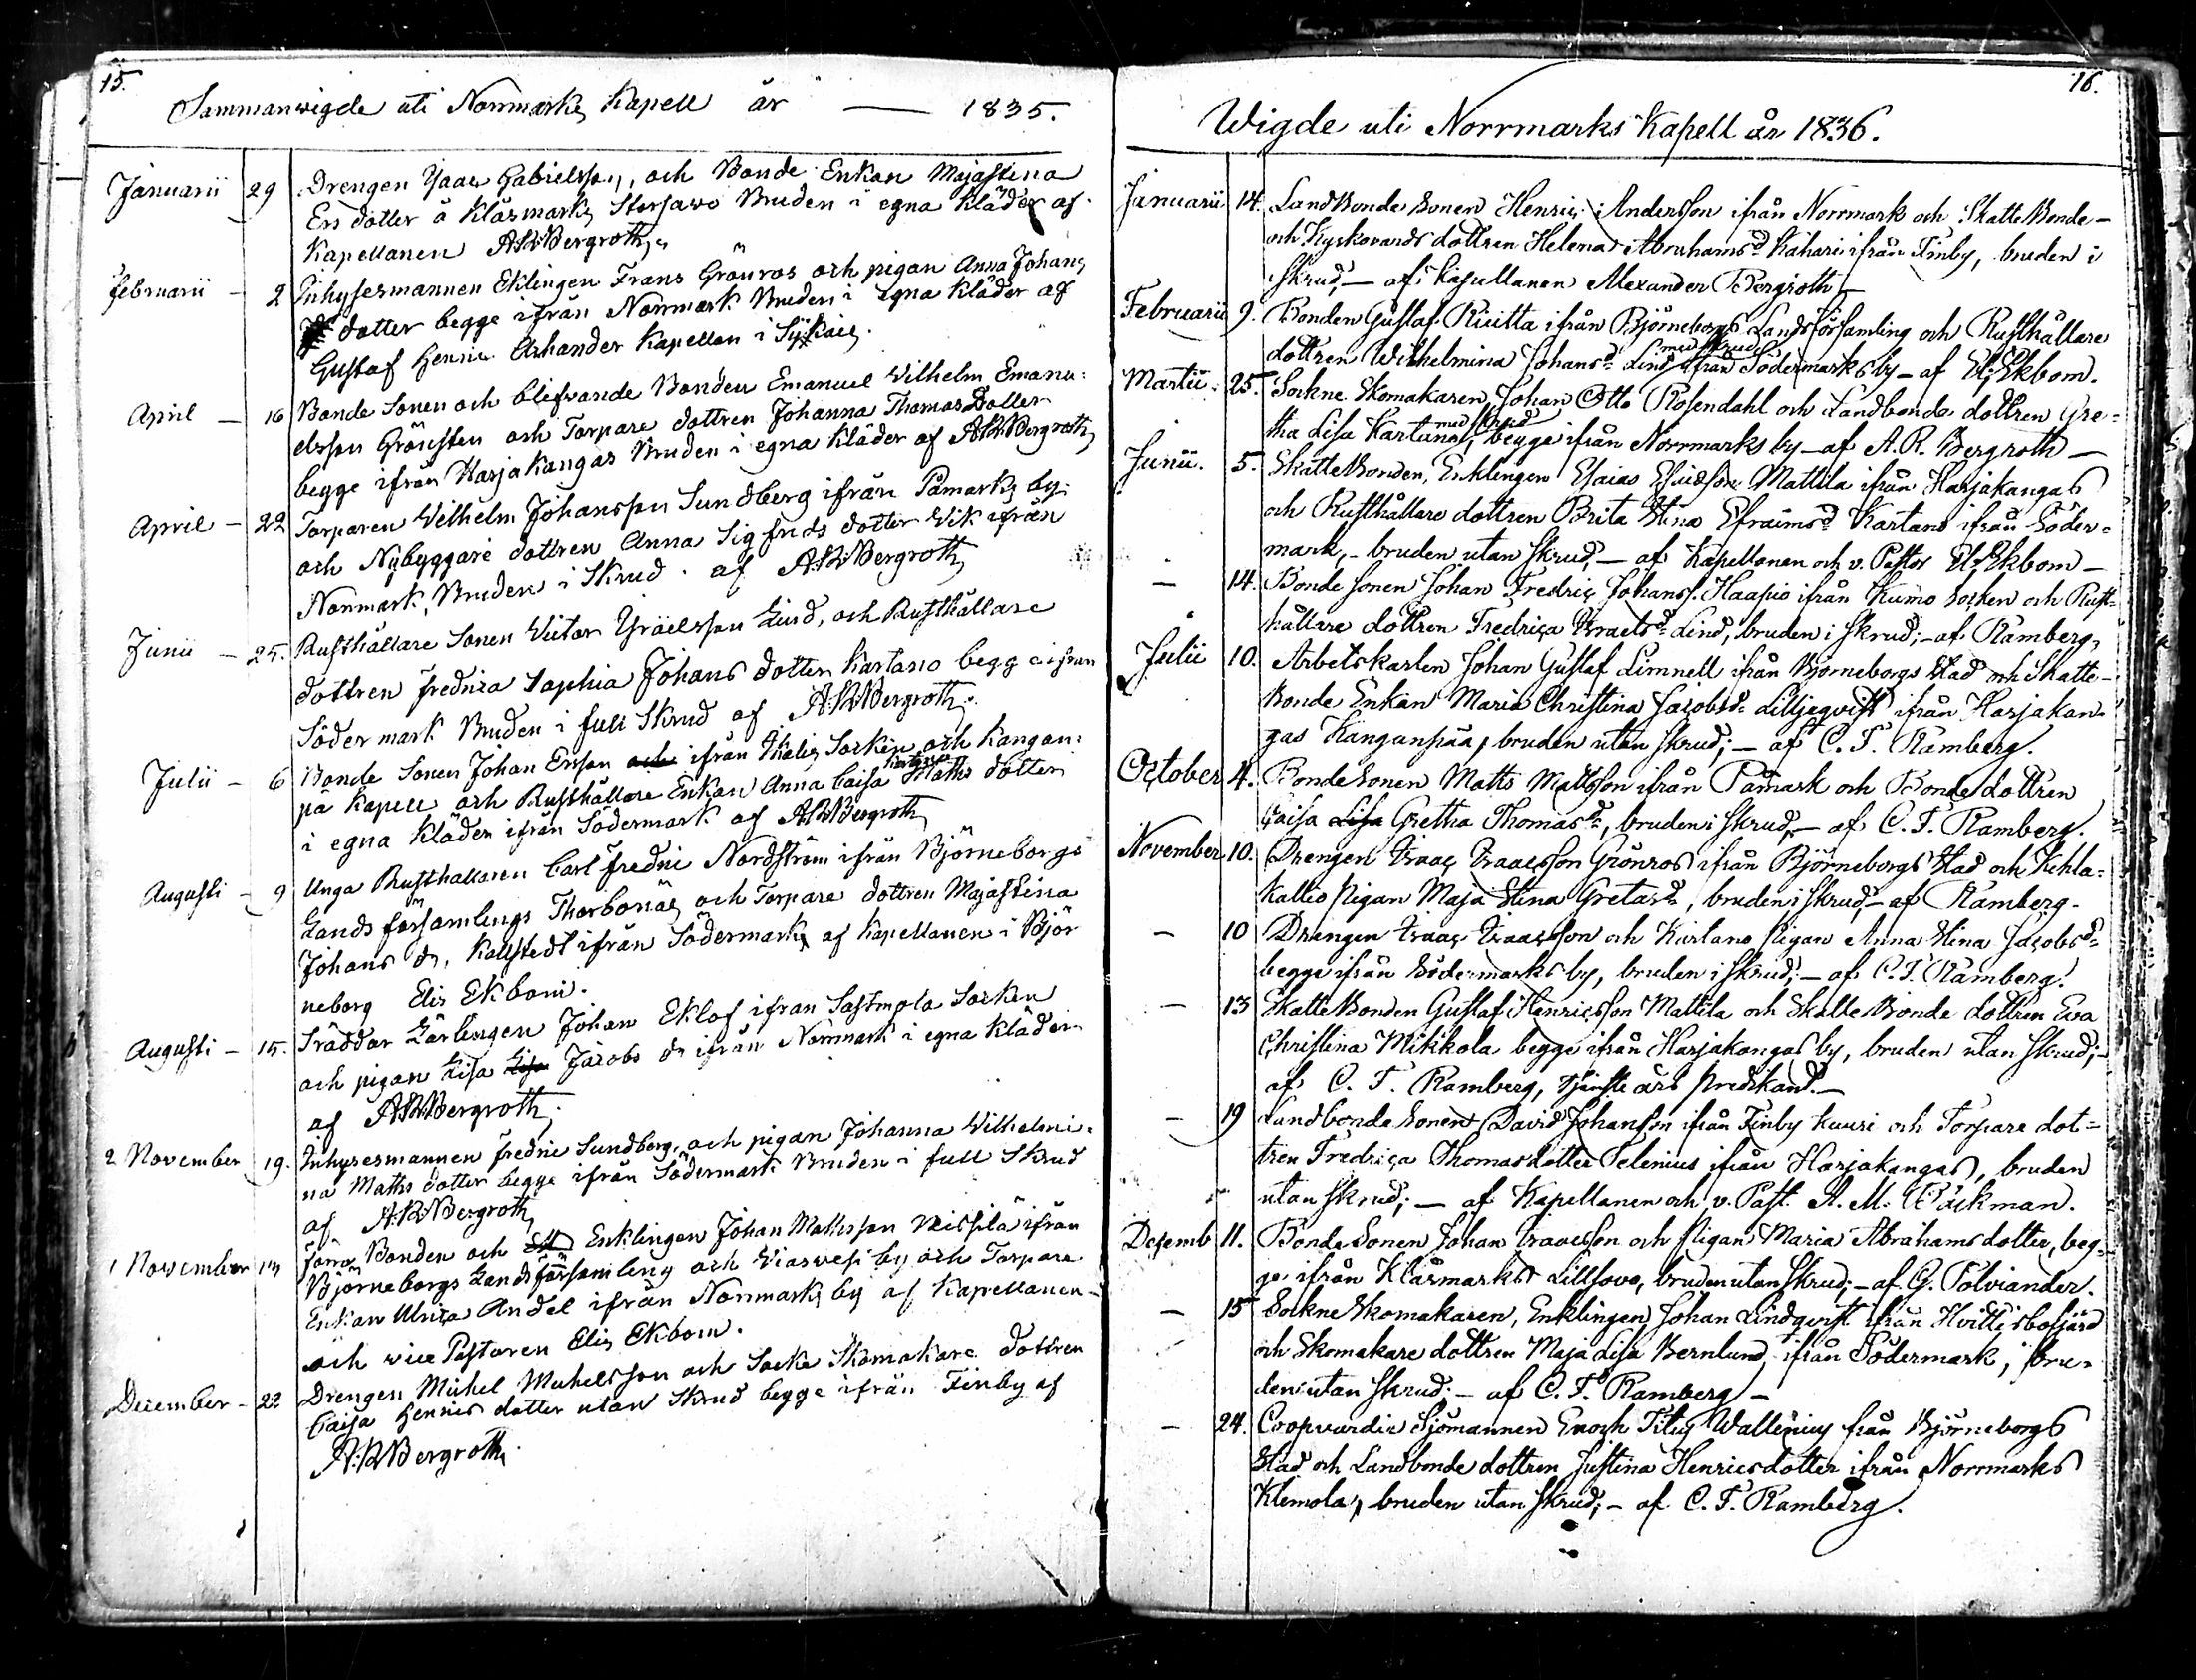 15.
Sammanwigde uti Norrmarks Kapell år — 1835.
Januarii 29 Drengen Isaac Gabrielsson, och Bonde Enkan Majastina
Ers dotter å Klåsmarks Storsawo Bruden i egna Kläder af
Kapellanen ARBergroth,
Februarii - 2 Inhysesmannen Eklingen Frans Grönros och pigan Anna Johans
dotter begge ifrån Norrmark Bruden i egna Kläder af
Gustaf Henric Kapellan i
April - 16 Bonde Sonen och blifvande Bonden Emanuel Wilhelm Emanu-
elsson Grönsten och Torpare dottren Johanna Thomas Dotter
begge ifrån Harjakangas Bruden i egna Kläder af ARBergroth
April - 22 Torparen Wilhelm Johansson Sundberg ifrån Påmarks by
och Nybyggare dottren Anna Sigfrids dotter Wik ifrån
Norrmark, Bruden i Skrud. af ARBergroth
Junii - 25. Rusthållare Sonen Victor Israelsson Lind, och Rusthållare
dottren Fredrica Sophia Johans dotter Kartano begge ifrån
Södermark Bruden i full Skrud af ARBergroth.
Julii - 6 Bonde Sonen Johan Ersson och ifrån Socken och Kangan-
pä Kapell och Rusthållare Enkan Anna Caisa Maths dotter
i egna Kläder ifrån Södermark af ARBergroth
Augusti - 9 Unga Rusthållaren Carl Fredric Nordström ifrån Björneborgs
Lands församlings Thorbonäs och Torpare dottren Majastina
Johans dr. Kallstedt ifrån Södermarks af Kapellanen i Björ
neborg Elis Ekbom.
Augusti - 15. Skräddar Lärlingen Johan Eklof ifran Sastmola Socken
och pigan Lisa Lisa Jacobs dr ifrån Norrmark i egna Kläder
af ARBergroth.
2 November 19. Inhysesmannen Fredric Sundberg, och pigan Johanna Wilhelmi-
na Maths dotter begge ifrån Södermark Bruden i full Skrud
af ARBergroth
1 November 13 Förra Bonden och Enklingen Johan Mathsson ifrån
Björneborgs Landsförsamling och Wiaswesi by och Torpare
Enkan Ulrica Andel ifrån Norrmarks by af Kapellanen
och vice Pastoren Elis Ekbom.
December - 22 Drengen Michel Michelsson och Sockne Skomakare dottren
Caisa Henrics dotter utan Skrud begge ifrån Finby af
A.R.Bergroth.
16.
Wigde uti Norrmarks Kapell år 1836.
Januarii 14. Landbonde Sonen Henric Andersson ifrån Norrmark och Skatte Bonde-
och Kyrkovards dottren Helena Abrahamsd. Kahari ifrån Finby, bruden i
Skrud; — af Kapellanen Alexander Bergroth —
Februarii 9. Bonden Gustaf Ricitta ifrån Björneborgs Landsförsamling och Rusthållare
dottren Wilhelmina Johansd. Lind med skrud ifrån Södermarks by — af El. Ekbom.
Martii. 25. Sockne Skomakaren Johan Otto Rosendahl och Landbonde dottren Gre-
tha Lisa Kartano, med skrud begge ifrån Norrmarks by — af A. R. Bergroth —
Junii. 5. Skatte Bonden, Enklingen Esaias Esaisson Mattila ifrån Harjakangas
och Rusthållare dottren Brita Stina Efraimsd. Kartano ifrån Söder-
mark, — bruden utan skrud; — af Kapellanen och v. Pastor El. Ekbom —
— 14. Bonde Sonen Johan Fredric Johanss. Haapio ifrån Kumo Socken och Rust-
hållare dottren Fredrica Israelsd. Lind, bruden i skrud; — af Ramberg,
Julii 10. Arbetskarlen Johan Gustaf Limnell ifrån Björneborgs Stad och Skatte-
Bonde Enkan Maria Christina Jacobsd. Liljeqvist ifrån Harjakan-
gas Kanganpää, bruden utan skrud; — af C. F. Ramberg.
October 4. Bonde Sonen Matts Mattsson ifrån Påmark och Bonde dottren
Caisa Lisa Gretha Thomasd., bruden i skrud, — af C. F. Ramberg.
November 10. Drengen Isaac Isaacsson Grönros ifrån Björneborgs Stad och Kehla-
kallio Pigan Maja Stina Gretasd., bruden i skrud, — af Ramberg.
— 10 Drengen Isaac Isaacsson och Kartano Pigan Anna Stina Jacobsd.
begge ifrån Södermarks by, bruden i skrud; — af C. F. Ramberg.
— 13 Skatte Bonden Gustaf Henricsson Mattila och Skatte Bonde dottren Eva
Christina Mikkola begge ifrån Harjakangas by, bruden utan skrud; —
af C. F. Ramberg, tjänste års predikant. —
— 19 Landbonde Sonen David Johansson ifrån Finby Kuuri och Torpare dot-
tren Fredrica Thomasdotter Selenius ifrån Harjakangas, bruden
utan skrud; — af Kapellanen och v. Past. A. M. Bäckman.
Decemb. 11. Bonde Sonen Johan Isaacsson och Pigan Maria Abrahamsdotter, beg-
ge ifrån Klåsmarks Lillsovo, bruden utan skrud; — af G. Polviander.
— 15 Sockne Skomakaren, Enklingen Johan Lindqvist ifrån Hvittisbofjärd
och Skomakare dottren Maja Lisa Bernlund, ifrån Södermark, bru-
den utan skrud; — af C. F. Ramberg —
— 24. Coopvardie Sjömannen Enoch Titus Wallenius från Björneborgs
Stad och Landbonde dottren Justina Henricsdotter ifrån Norrmarks
Klemola, bruden utan skrud; — af C. F. Ramberg.